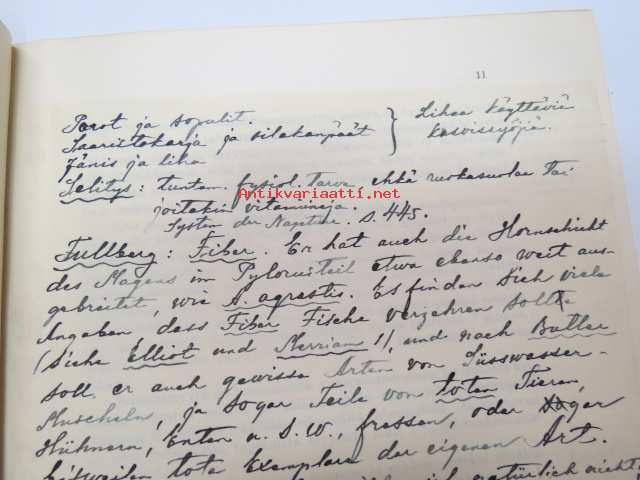 11
Porot ja sopulit.
Saaristokarja ja silakanpäät
Jänis ja liha
} Lihaa käyttäviä
kasvissyöjiä.
Selitys: tuntem. fysiol. tarve ehkä ruokasuolaa tai
joitakin vitamineja.
Antikvariaatti.net
System der Nagetiere. S. 445.
Tullberg: Fiber. Er hat auch die Hornschicht
des Magens im Pylorusteil etwa ebenso weit aus-
gebreitet, wie A. agrestis. Es finden sich viele
Angaben dass Fiber Fische verzehren sollte
(siehe Elliot und Merriam 1), und nach Butler
soll er auch gewisse Arten von Süsswasser-
Muscheln, ja sogar Teile von toten Tieren,
Hühnern, Enten u. s. w., fressen, oder sogar
bisweilen tote Exemplare der eigenen Art.
natürlich nicht